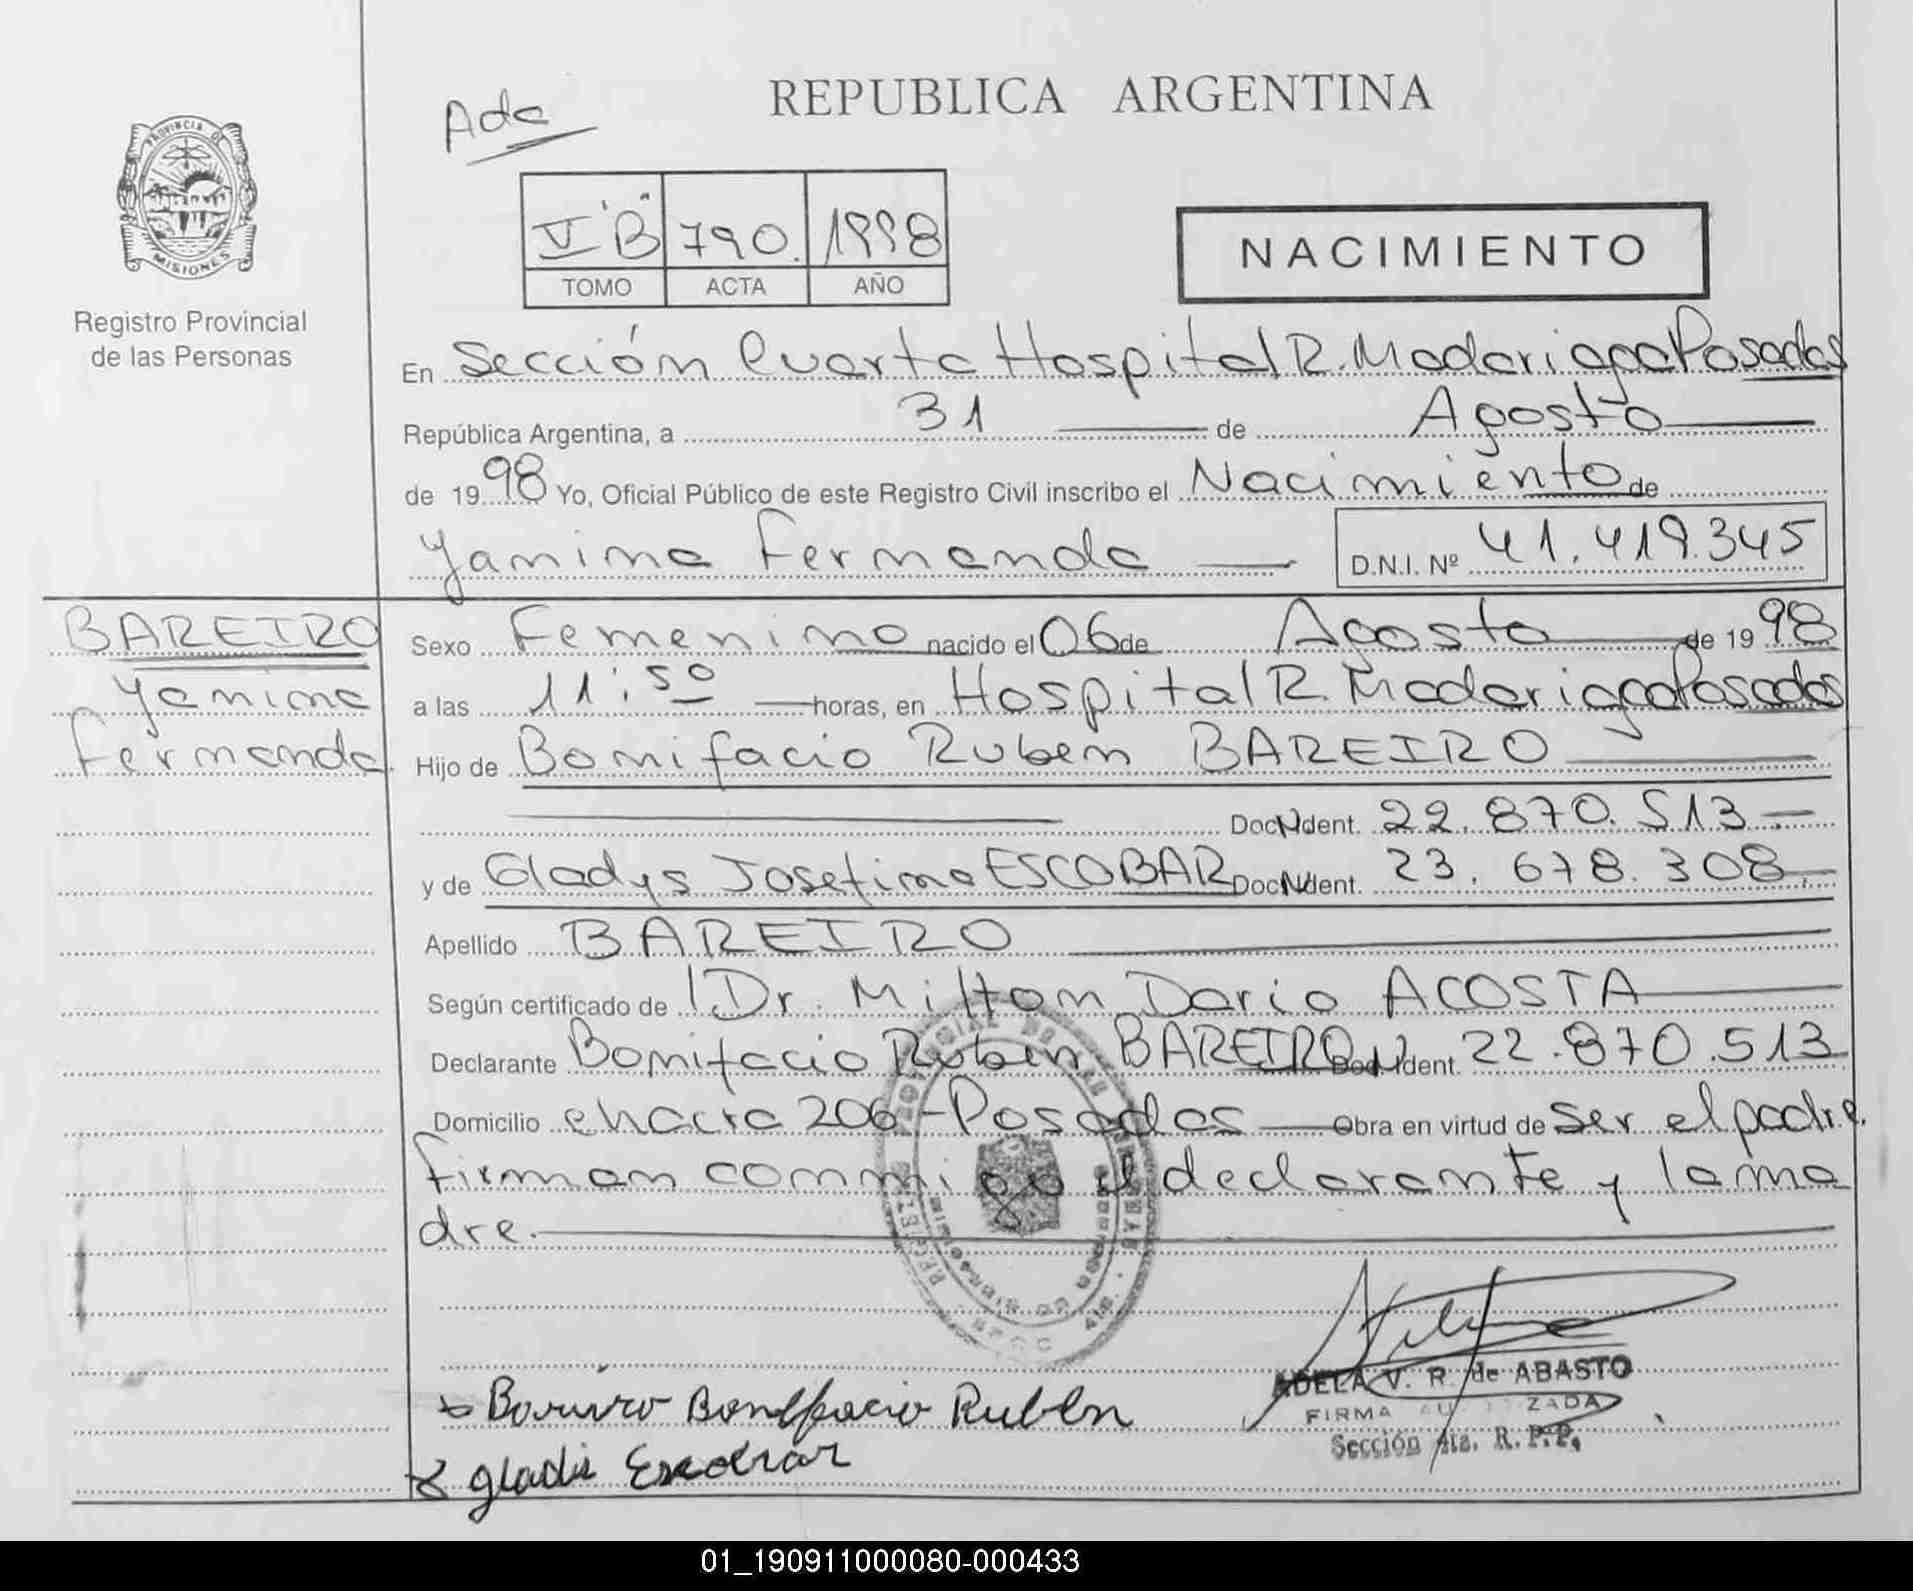 REPUBLICA ARGENTINA
PROVINCIA DE
MISIONES
Registro Provincial
de las Personas
V "B" 790. 1998
TOMO ACTA AÑO
NACIMIENTO
En Sección Cuarta Hospital R. Madariaga Posadas
República Argentina, a 31 de Agosto
de 1998 Yo, Oficial Público de este Registro Civil inscribo el Nacimiento de
Yanina Fernanda D.N.I. Nº 41.419.345
BAREIRO
Yanina
Fernanda.
Sexo Femenino nacido el 06 de Agosto de 1998
a las 11:50 horas, en Hospital R. Madariaga Posadas
Hijo de Bonifacio Ruben BAREIRO
Doc. Ident. 22.870.513.-
y de Gladys Josefina ESCOBAR Doc. Ident. 23.678.308.
Apellido BAREIRO
Según certificado de Dr. Milton Dario ACOSTA
Declarante Bonifacio Ruben BAREIRO Doc. Ident. 22.870.513
Domicilio chacra 206 - Posadas Obra en virtud de ser el padre.
firman conmigo el declarante y la ma
dre.
ADELA V. R. de ABASTO
FIRMA AUTORIZADA
Sección 4ta. R. P. P.
Bareiro Bonifacio Ruben
Gladis Escobar
01_190911000080-000433